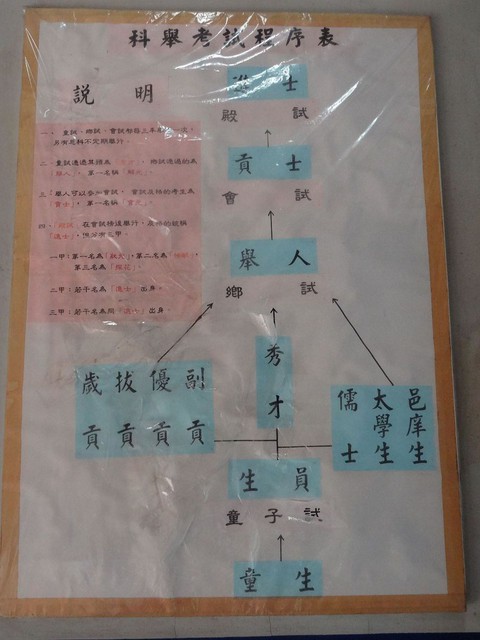 科舉考試程序表
說明
一、童試、鄉試、會試都每三年舉行一次，
另有恩科不定期舉行。
二、童試通過其錄為「 」，鄉試通過的為
「舉人」，第一名稱「解元」。
三、舉人可以參加會試，會試及格的考生為
「貢士」，第一名稱「會元」。
四、殿試，在會試後這舉行，及格的就稱
「進士」，但分有三甲。
一甲：第一名為「狀元」，第二名為「榜眼」，
第三名為「探花」。
二甲：若干名為「進士」出身。
三甲：若干名為同「進士」出身。
進士
殿試
貢士
會試
舉人
鄉試
歲貢 拔貢 優貢 副貢
秀才
儒士 太學生 邑庠生
生員
童子試
童生